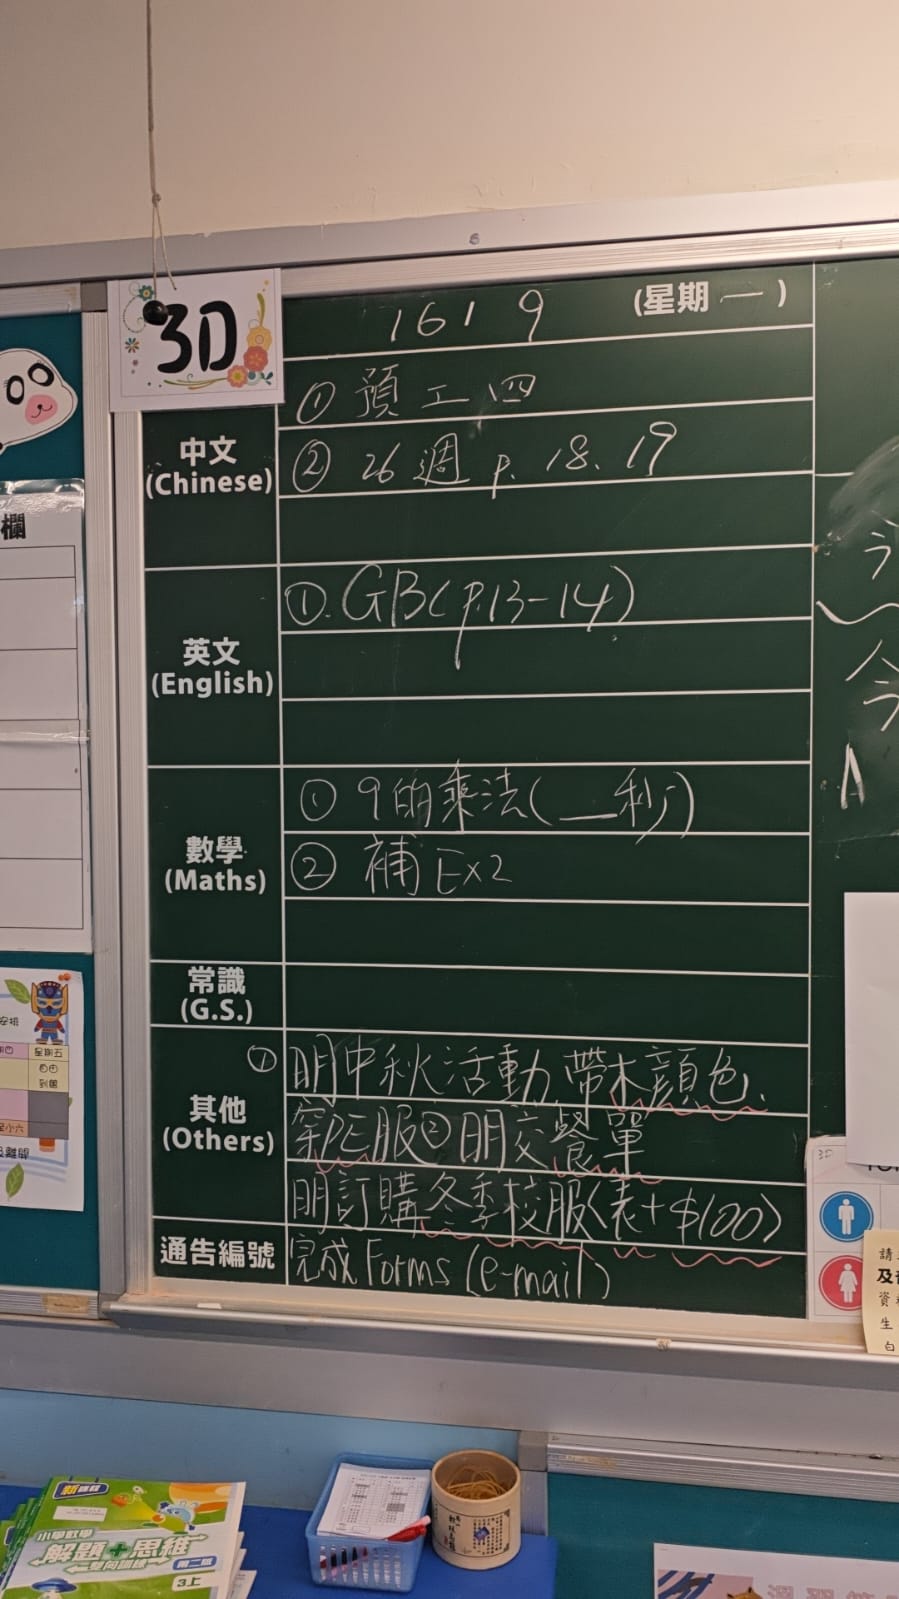 3D
161 9 (星期 一 )
中文
(Chinese)
① 預工四
② 26週 p. 18. 19
英文
(English)
①. GB(p.13-14)
數學
(Maths)
① 9的乘法(__秒)
② 補 Ex2
常識
(G.S.)
其他
(Others)
① 明中秋活動,帶木顏色.
穿PE服②明交餐單
明訂購冬季校服(表+$100)
通告編號
完成 Forms (e-mail)
欄
星期五
到舊
3D
請
及
資
生
白
新
小學數學
解題+思維
雙向訓練
第二版
3上